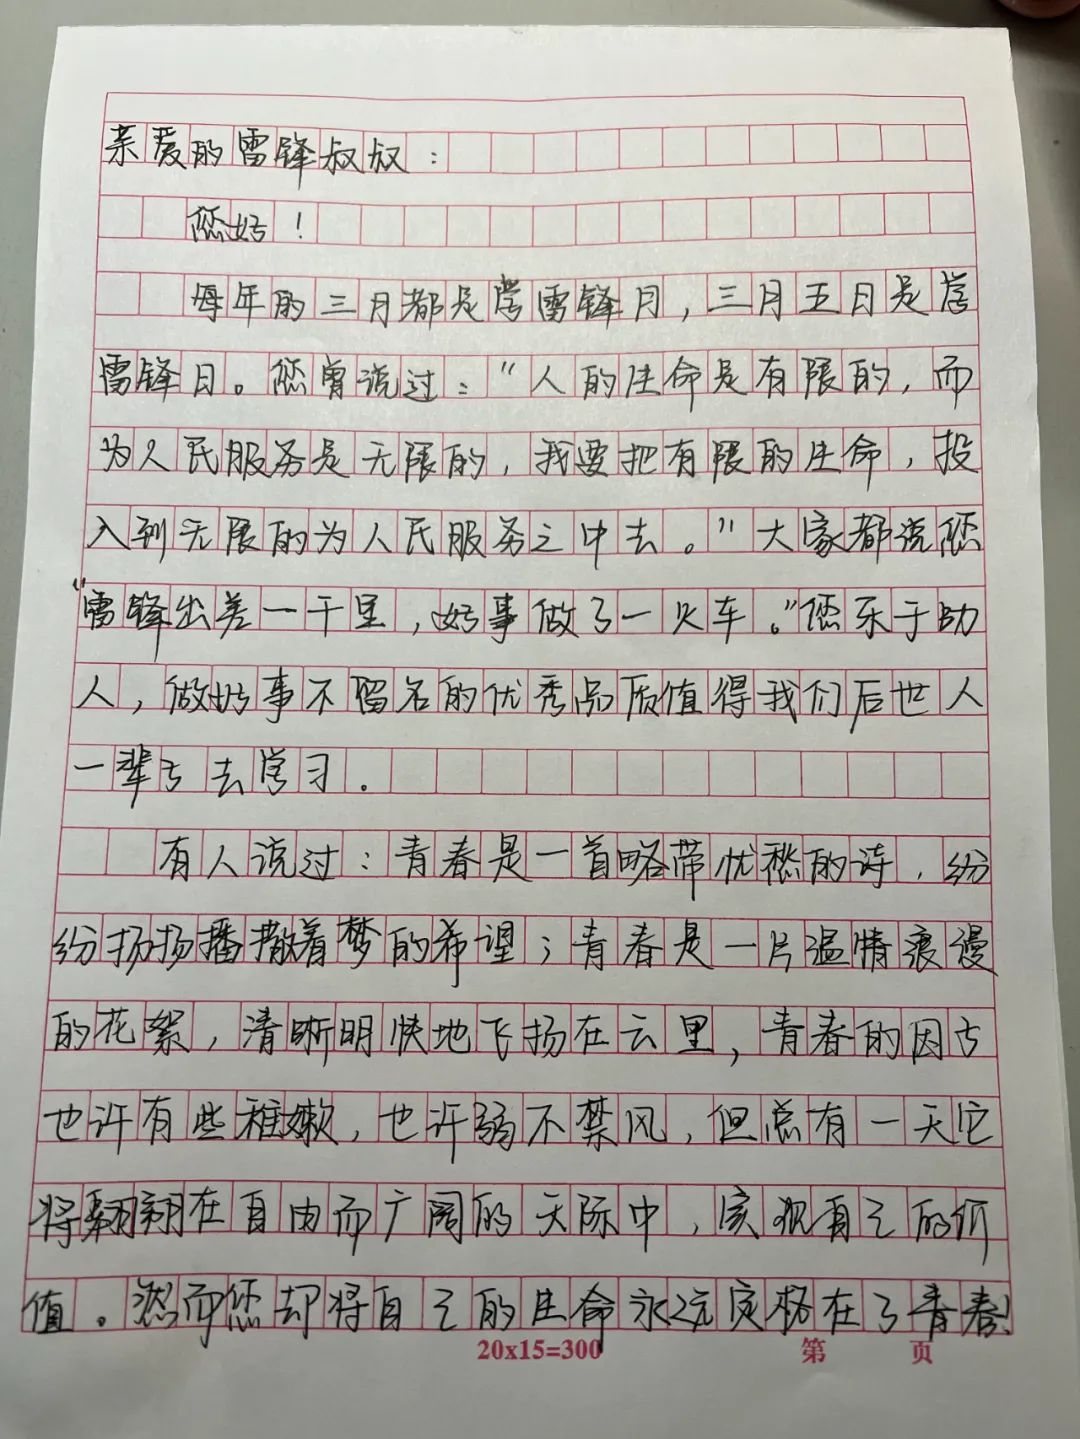 亲爱的雷锋叔叔：
您好！
每年的三月都是学雷锋月，三月五日是学
雷锋日。您曾说过：“人的生命是有限的，而
为人民服务是无限的，我要把有限的生命，投
入到无限的为人民服务之中去。”大家都说您
“雷锋出差一千里，好事做了一火车。”您乐于助
人，做好事不留名的优秀品质值得我们后世人
一辈子去学习.
有人说过：青春是一首略带忧愁的诗，纷
纷扬扬播撒着梦的希望；青春是一片温情浪漫
的花絮，清晰明快地飞扬在云里，青春的因古
也许有些稚嫩，也许弱不禁风，但总有一天它
将翱翔在自由而广阔的天际中，实现自己的价
值。然而您却将自己的生命永远定格在了青春！
20x15=300
第 页